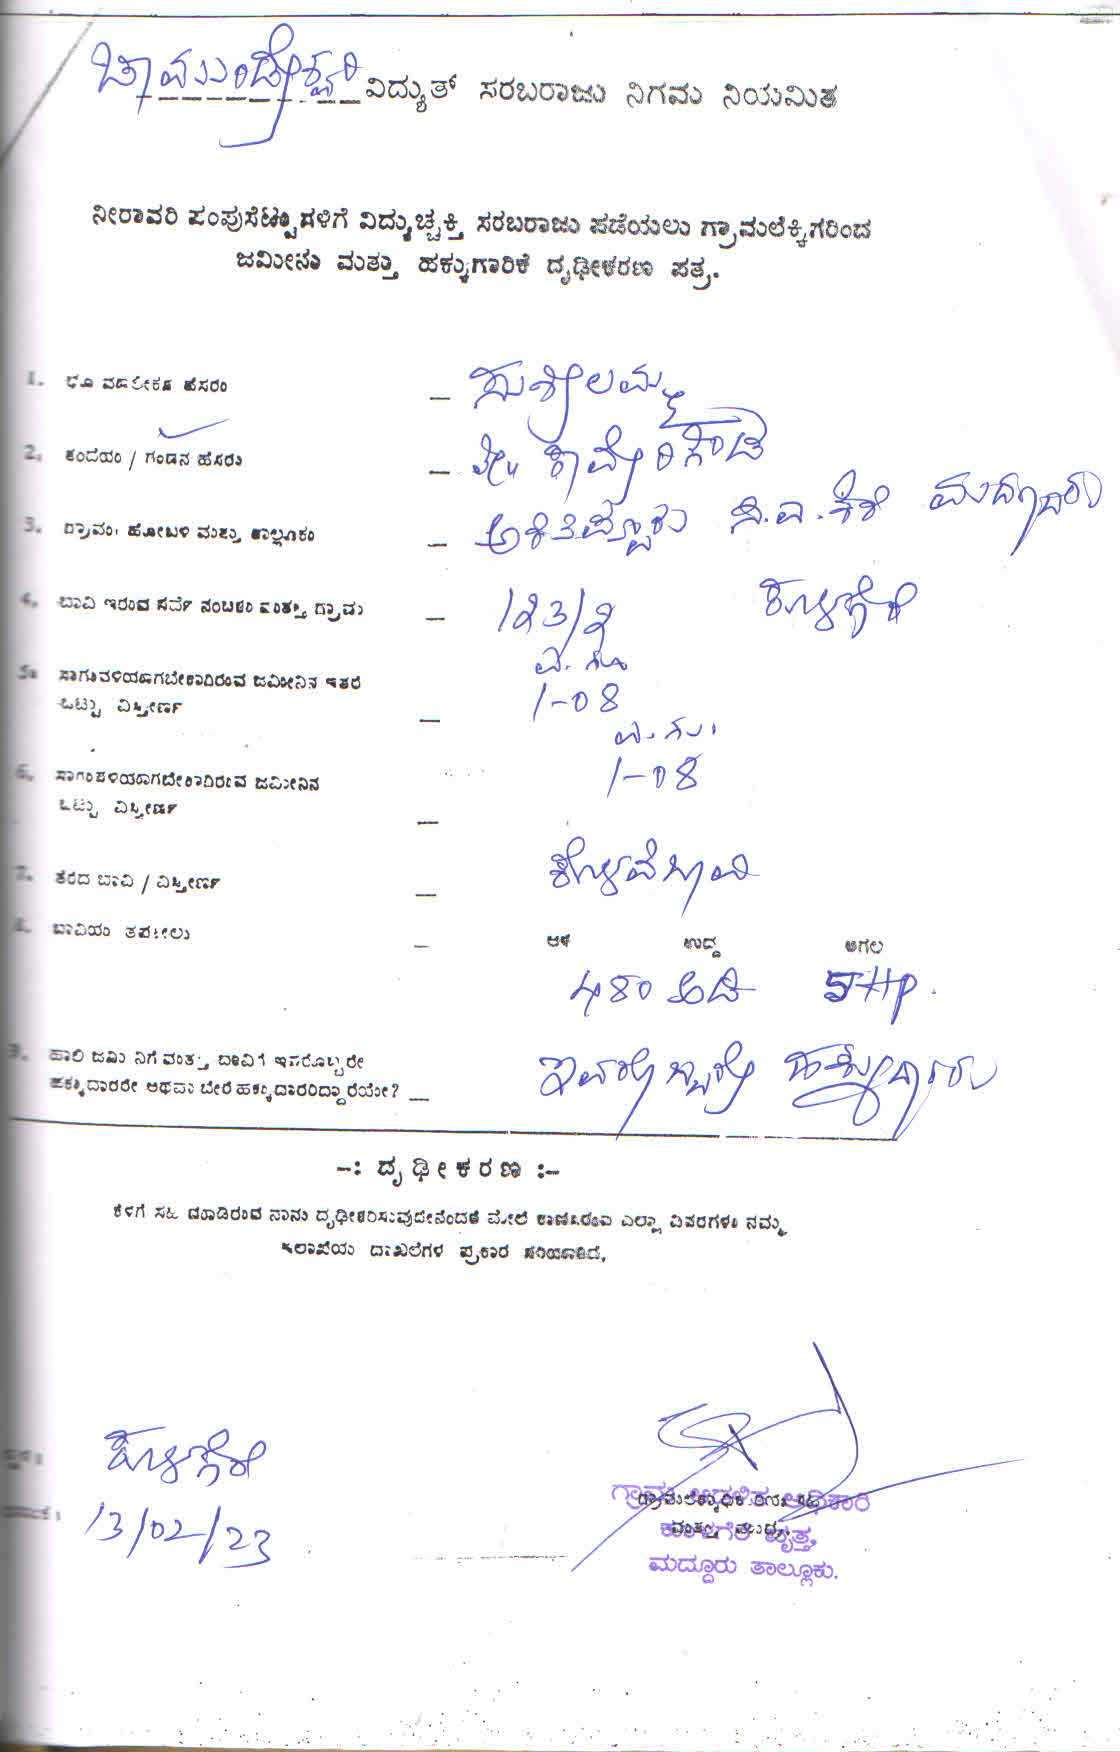 ಚಾಮುಂಡೇಶ್ವರಿ ವಿದ್ಯುತ್ ಸರಬರಾಜು ನಿಗಮ ನಿಯಮಿತ
ನೀರಾವರಿ ಪಂಪುಸೆಟ್ಟುಗಳಿಗೆ ವಿದ್ಯುಚ್ಛಕ್ತಿ ಸರಬರಾಜು ಪಡೆಯಲು ಗ್ರಾಮಲೆಕ್ಕಿಗರಿಂದ
ಜಮೀನು ಮತ್ತು ಹಕ್ಕುಗಾರಿಕೆ ದೃಢೀಕರಣ ಪತ್ರ.
1. ಭೂ ಮಾಲೀಕರ ಹೆಸರು – ಸುಶೀಲಮ್ಮ
2. ತಂದೆಯ / ಗಂಡನ ಹೆಸರು –
3. ಗ್ರಾಮ ಹೋಬಳಿ ಮತ್ತು ತಾಲ್ಲೂಕು – ಸಿ.ಎ.ಕೆರೆ ಮದ್ದೂರು
4. ಬಾವಿ ಇರುವ ಸರ್ವೆ ನಂಬರು ಮತ್ತು ಗ್ರಾಮ – ಕೂಳಗೆರೆ
ಎ. ಗು
5. ಸಾಗುವಳಿಯಾಗಬೇಕಾಗಿರುವ ಜಮೀನಿನ ಇತರೆ
ಒಟ್ಟು ವಿಸ್ತೀರ್ಣ – 1-08
ಎ. ಗು.
6. ಸಾಗುವಳಿಯಾಗಬೇಕಾಗಿರುವ ಜಮೀನಿನ
ಒಟ್ಟು ವಿಸ್ತೀರ್ಣ – 1-08
7. ತೆರೆದ ಬಾವಿ / ವಿಸ್ತೀರ್ಣ – ಕೊಳವೆಬಾವಿ
8. ಬಾವಿಯ ತಪಶೀಲು – ಆಳ ಉದ್ದ ಅಗಲ
480 ಅಡಿ 5HP.
9. ಹಾಲಿ ಜಮೀನಿಗೆ ಮತ್ತು ಬಾವಿಗೆ ಇವರೊಬ್ಬರೇ
ಹಕ್ಕುದಾರರೇ ಅಥವಾ ಬೇರೆ ಹಕ್ಕುದಾರರಿದ್ದಾರೆಯೇ? – ಇವರೊಬ್ಬರೇ ಹಕ್ಕುದಾರರು
–: ದೃಢೀಕರಣ :–
ಕೆಳಗೆ ಸಹಿ ಮಾಡಿರುವ ನಾನು ದೃಢೀಕರಿಸುವುದೇನೆಂದರೆ ಮೇಲೆ ಕಾಣಿಸಿರುವ ಎಲ್ಲಾ ವಿವರಗಳು ನಮ್ಮ
ಇಲಾಖೆಯ ದಾಖಲೆಗಳ ಪ್ರಕಾರ ಸರಿಯಾಗಿದೆ.
ಸ್ಥಳ : ಕೂಳಗೆರೆ
ದಿನಾಂಕ : 13/02/23
ಗ್ರಾಮ ಆಡಳಿತ ಅಧಿಕಾರಿ
ಕೂಳಗೆರೆ ವೃತ್ತ,
ಮದ್ದೂರು ತಾಲ್ಲೂಕು.